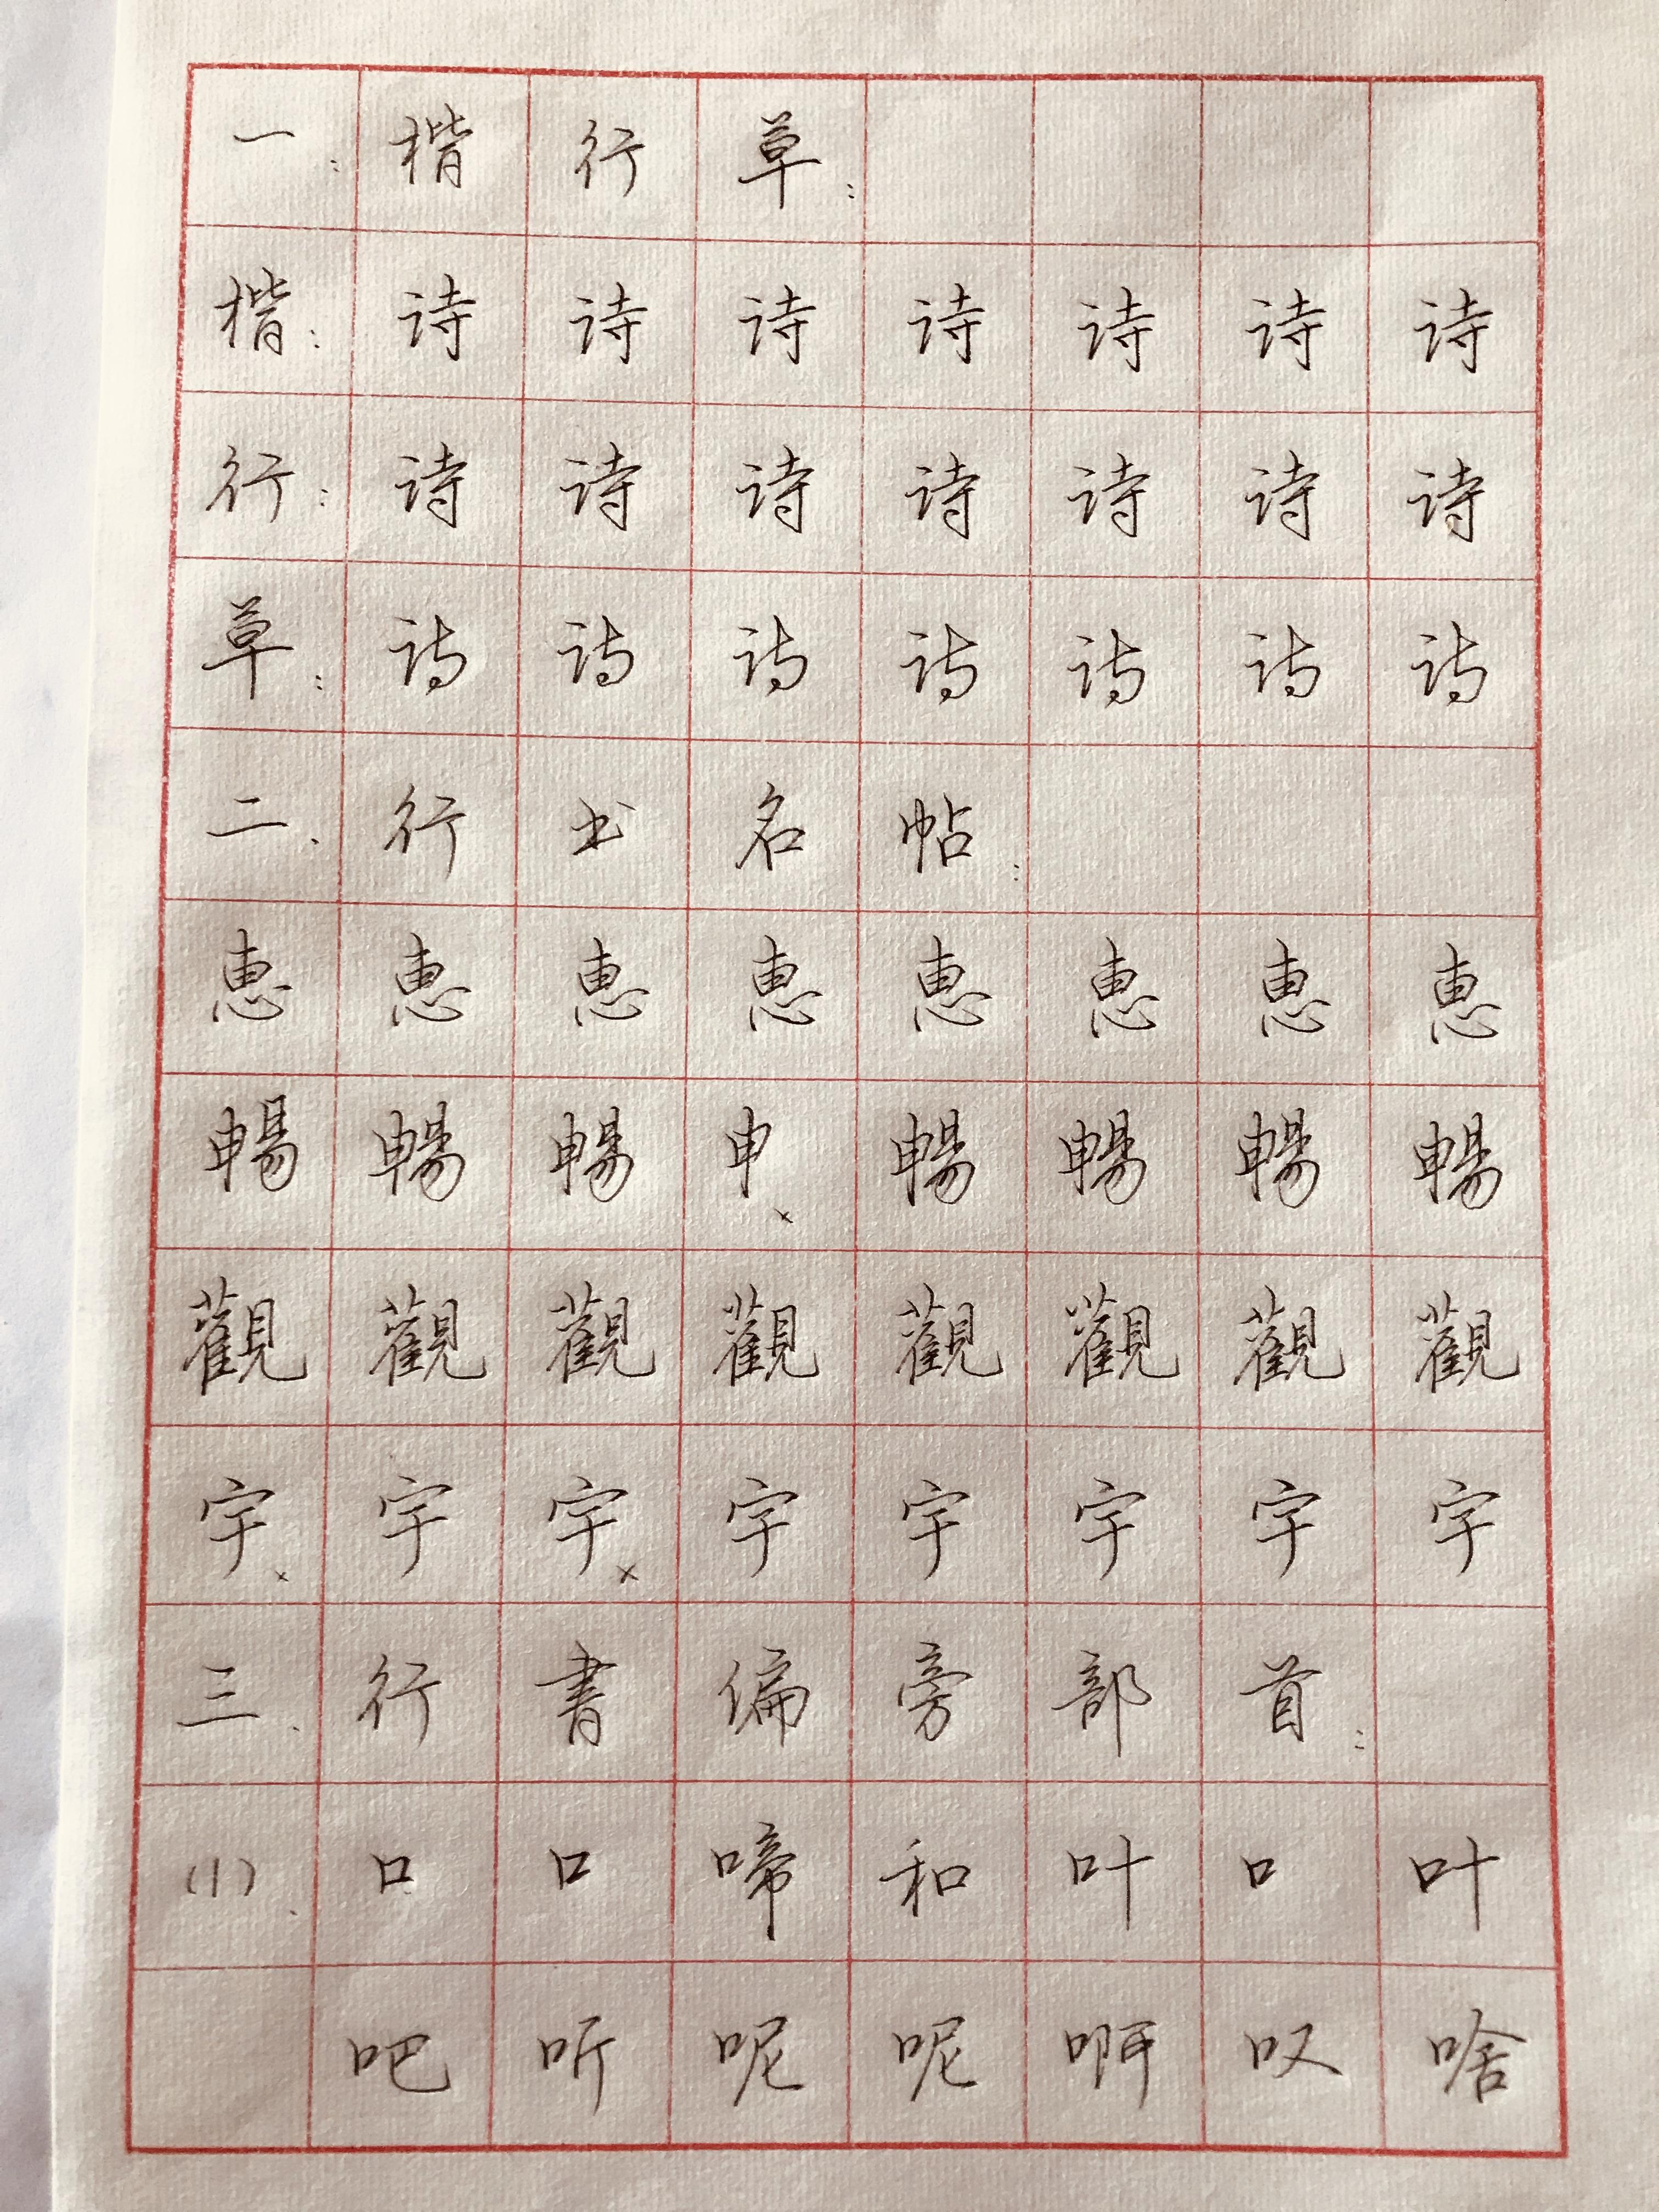 一：楷行草：
楷：诗诗诗诗诗诗诗
行：诗诗诗诗诗诗诗
草：诗诗诗诗诗诗诗
二、行书名帖：
惠惠惠惠惠惠惠惠
暢暢暢申×暢暢暢暢
觀觀觀觀觀觀觀觀
宇×宇宇×宇宇宇宇宇
三、行書偏旁部首：
(1)、口口啼和叶口叶
吧听呢呢啊叹啥